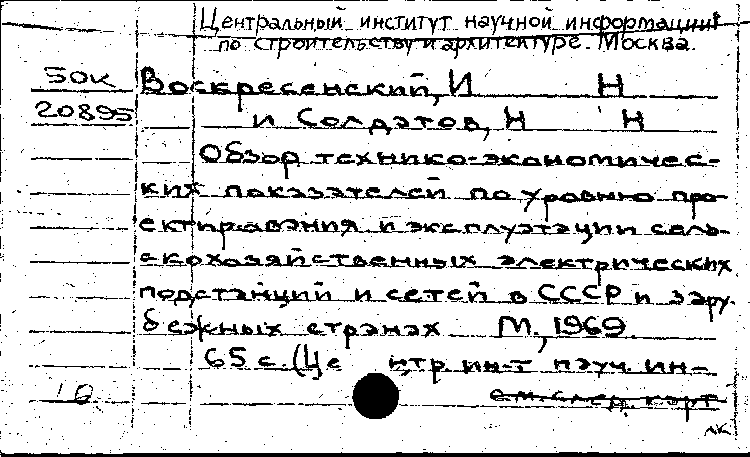 Центральный институт научной информации
по строительству и архитектуре. Москва.
50к
Воскресенский, И Н
20895
и Солдатов, Н Н
Обзор технико-экономичес-
ких показателей по уровню про-
ектирования и эксплуатации сель-
скохозяйственных электрических
подстанций и сетей в СССР и зару-
бежных странах М., 1969.
65 с. (Це нтр. ин-т науч. ин-
10
см. след. карт
лк